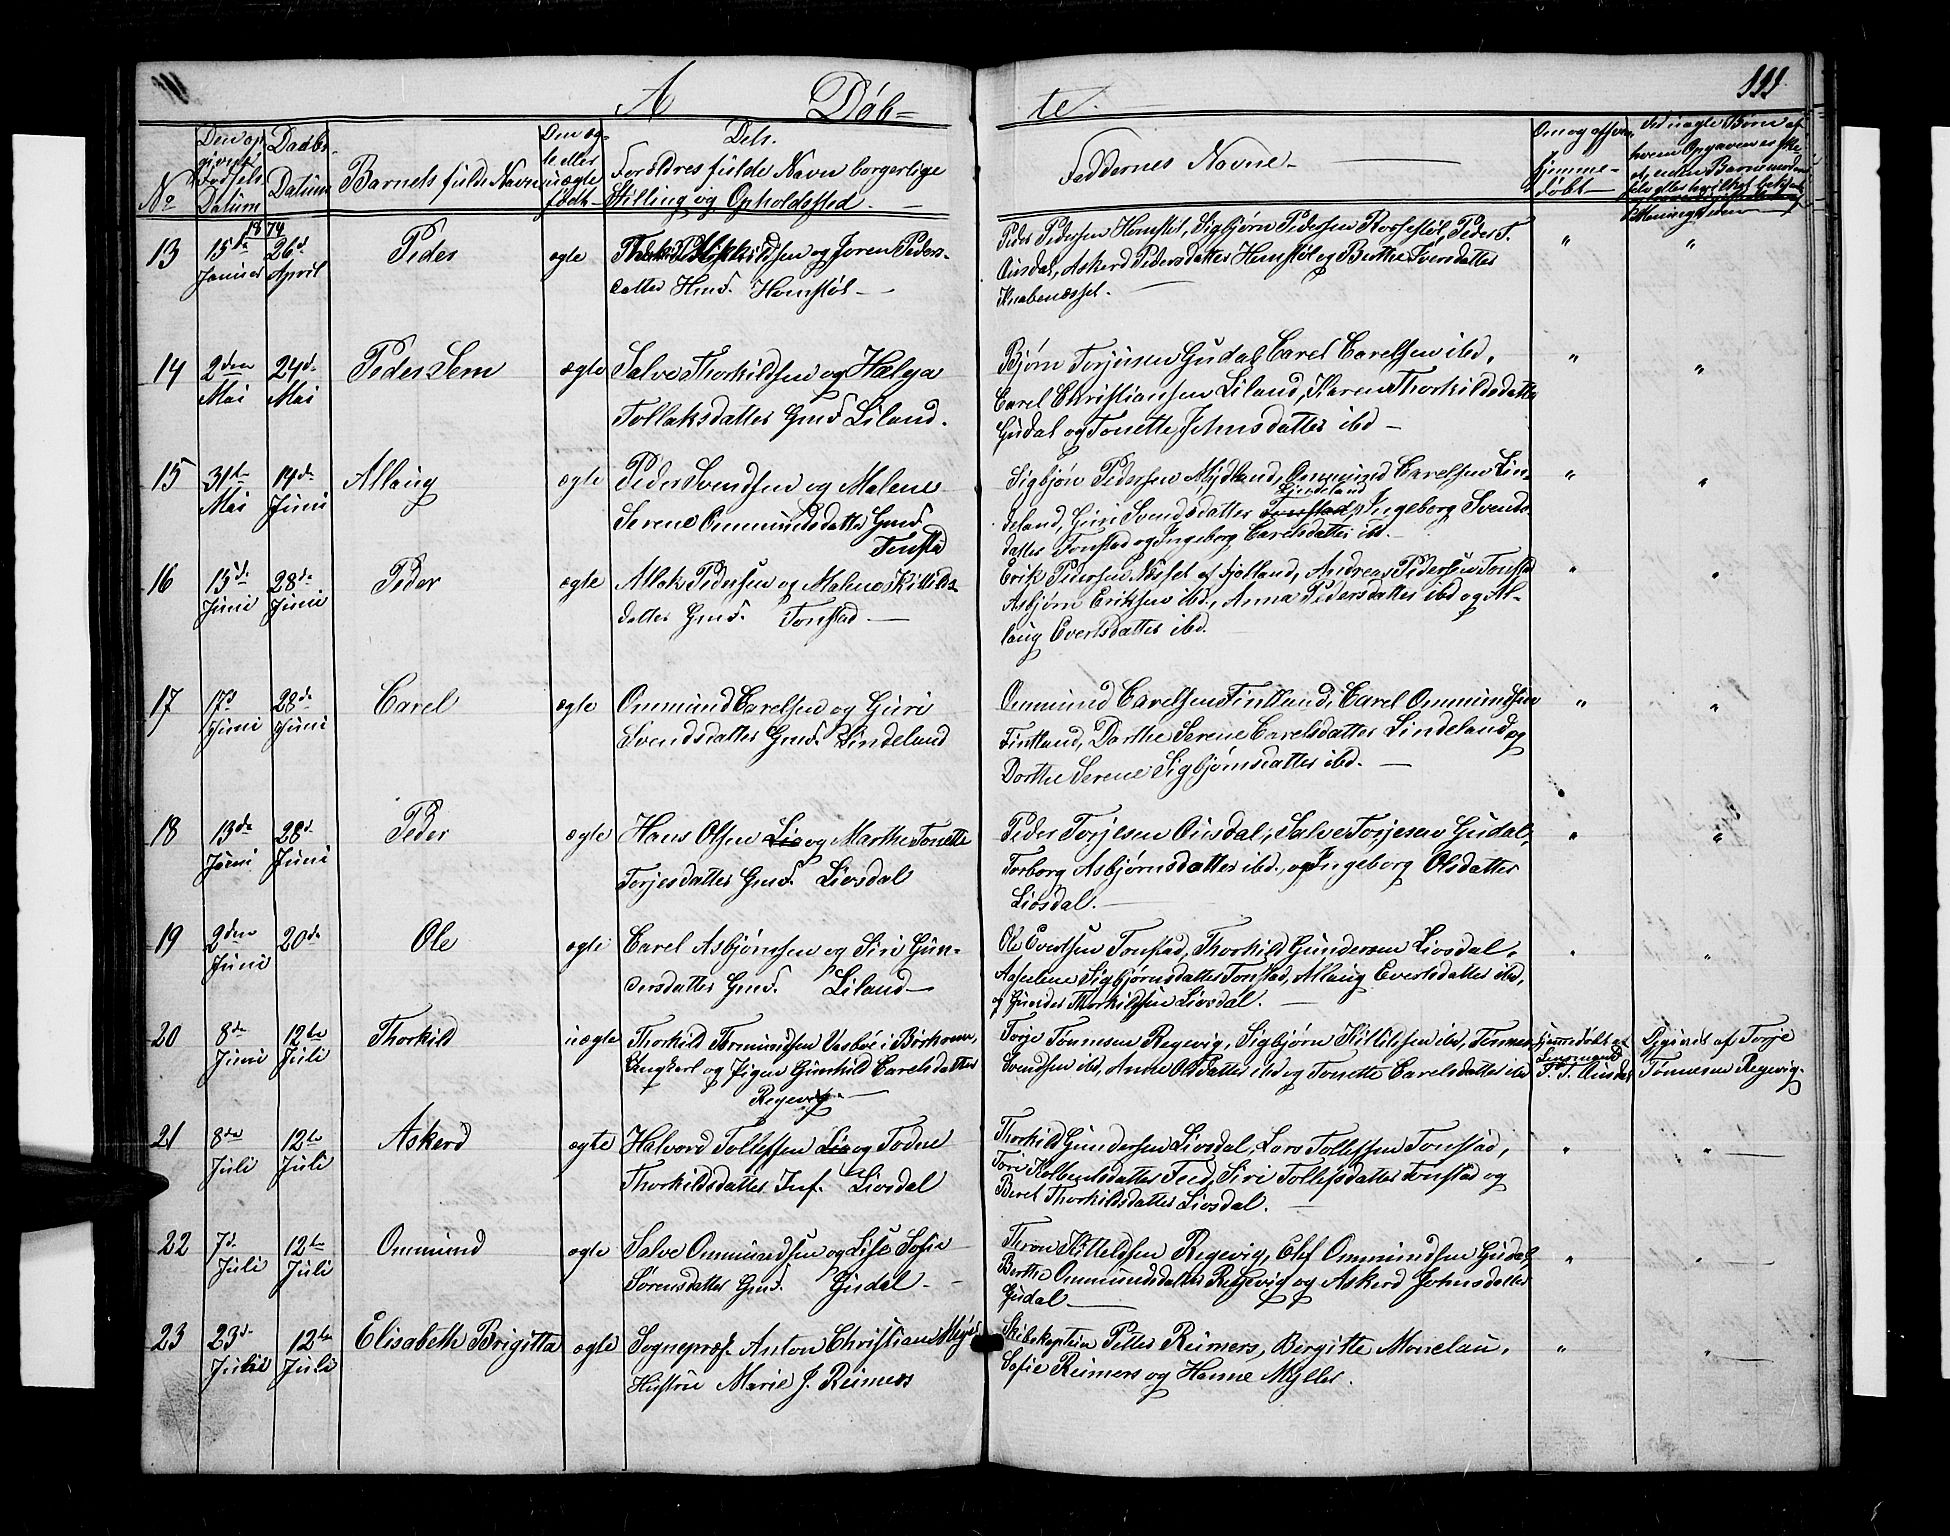 A Døb-
te.
111
No
Den op-
givne
Fødsels
Datum
Daabs-
Datum
Barnets fulde Navn
Den æg-
te eller
uægte
født
Dets.
Forældres fulde Navn borgerlige
Stilling og Opholdssted.
Faddernes Navne
Om og af hvem
hjemme-
døbt
Ved uægte Børn af
hvem Opgaven er
1874
13 15de Januar 26d April Peder ægte
og Joren Peders-
datter Hmd. Homstøl
Peder Pedersen Homstøl, Sigbjørn Pedersen Rossestøl, Peder T.
Ousdal, Askerd Pedersdatter Homstøl og Berthe Iversdatter
Knabenæsset.
14 2den Mai 24d. Mai Peder Sem ægte
Salve Thorkildsen og Hælga
Tollaksdatter Gmd. Liland.
Bjørn Torjusen Gudal, Carel Carelsen ibd,
Carel Christiansen Liland, Karen Thorkildsdatter
Gudal og Tonette Johnsdatter ibd
15 31te Mai 14d. Juni Allaug ægte
Peder Svendsen og Malene
Serene Ommundsdatter Gmd.
Tonstad
Sigbjøn Pedersen Mydland, Ommund Carelsen Lin-
Lindeland
deland, Guri Svendsdatter Tonstad, Ingeborg Svends-
datter Tonstad og Ingeborg Carelsdatter ibd.
16 15d. Juni 28de Juni Peder ægte
Allak Pedersen og Malene Kittils-
datter Gmd. Tonstad
Erik Pedersen Næsset af Fjotland, Andreas Pedersen Tonstad
Asbjørn Eriksen ibd., Anna Pedersdatter ibd og Al-
laug Evertsdatter ibd.
17 17d Juni 28de Juni Carel ægte
Ommund Carelsen og Guri
Svendsdatter Gmd. Lindeland
Ommund Carelsen Fintland, Carel Ommundsen
Fintland, Dorthe Serene Carelsdatter Lindeland og
Dorthe Serene Sigbjørnsdatter ibd.
18 13de Juni 28d. Juni Peder ægte
Hans Olsen Lia og Marthe Tonette
Torjesdatter Gmd. Liosdal
Peder Torjesen Ousdal, Salve Torjesen Gudal,
Torborg Asbjørnsdatter ibd., og Ingeborg Olsdatter
Liosdal.
19 2den Juni 20de Ole ægte
Carel Asbjørnsen og Siri Gun-
dersdatter Gmd. Liland
Ole Evertsen Tonstad, Thorkild Gundersen Liosdal,
Aaseline Sigbjørnsdatter Tonstad, Allaug Evertsdatter ibd,
og Gunder Thorkildsen Liosdal.
20 8de Juni 12te Juli Thorkild uægte
Thorkild Tormundsen Vasbøe i Børkom,
Ungkarl og Pigen Gunhild Carelsdatter
Regevig.
Torje Tønnesen Regevig, Sigbjørn Kittilsen ibd, Tønnes
Svendsen ibd, Anne Olsdatter ibd og Tonette Carelsdatter ibd
hjemmedøbt af
Lensmand
P. T. Ousdal
Opgivet af Torje
Tønnesen Regevig.
21 8de Juli 12te Juli Askerd ægte
Halvord Tollefsen Lia og Todne
Thorkildsdatter Inf. Liosdal
Thorkild Gundersen Liosdal, Lars Tollefsen Tonstad,
Tori Kolbensdatter Feed, Siri Tollefsdatter Tonstad og
Beret Thorkildsdatter Liosdal.
22 7d. Juli 12te Juli Ommund ægte
Salve Ommundsen og Lise Sofie
Sørensdatter Gmd. Gudal.
Thron Kittelsen Regevig, Elef Ommundsen Gudal,
Berthe Ommundsdatter Regevig og Askerd Johnsdatter
Gudal
23 23d. 12te Juli Elisabeth Brigitta ægte
Sognepræst Anton Christian
Hustru Marie J. Reimers
Skibskaptein Petter Reimers, Birgitte Monclau,
Sofie Reimers og Hanne Myller.